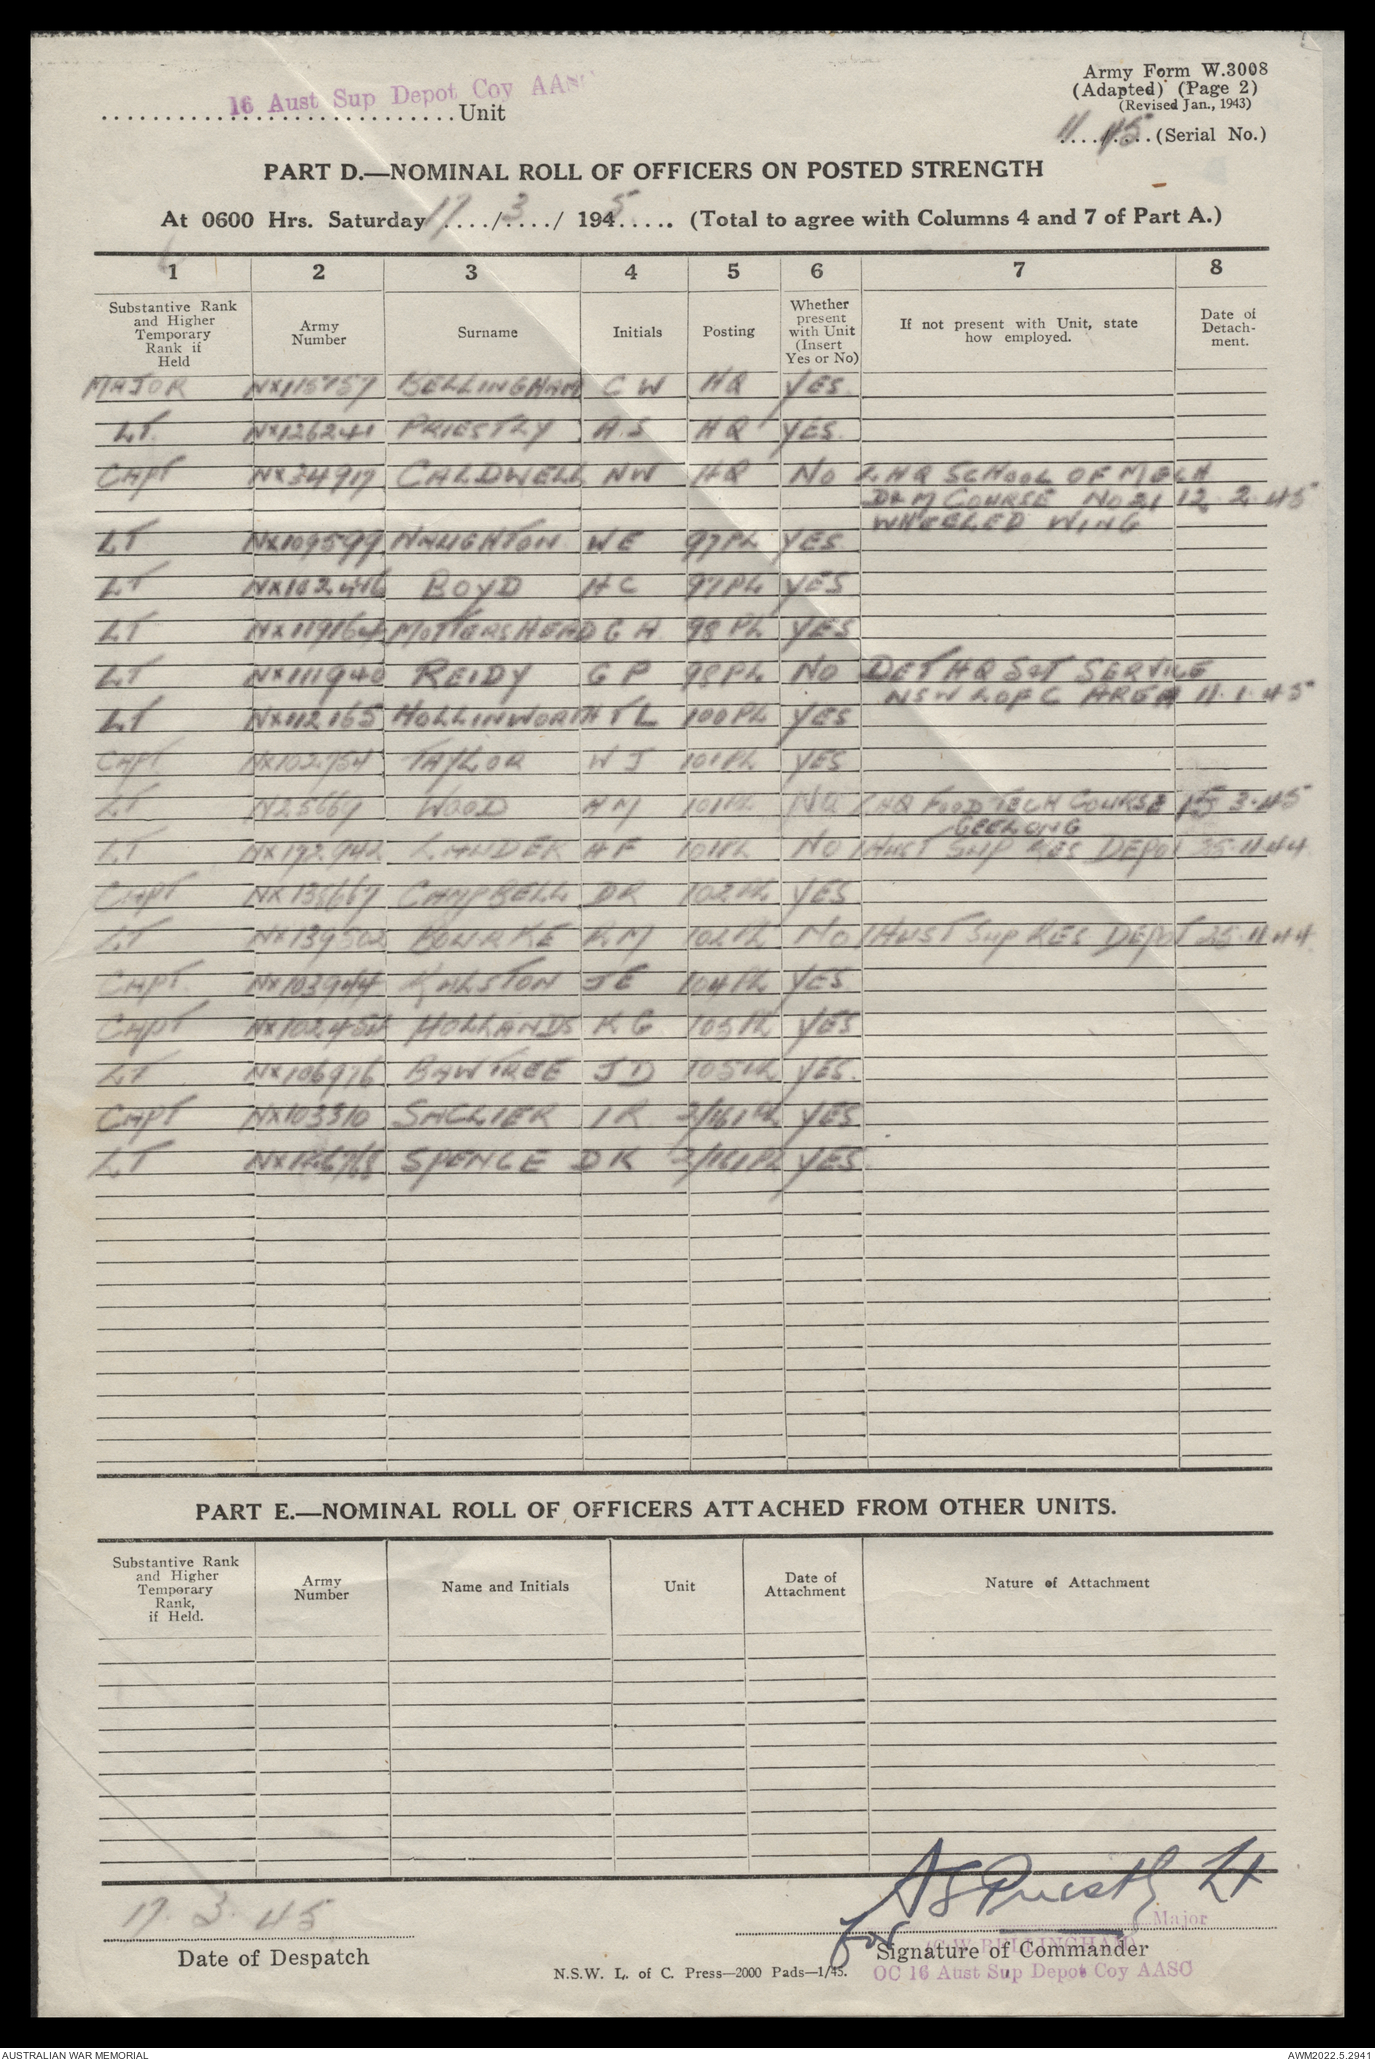 Army Form W.3008
(Adapted) (Page 2)
(Revised Jan., 1943)
16 Aust Sup Depot Coy AASC
Unit
11 45 (Serial No.)
PART D.—NOMINAL ROLL OF OFFICERS ON POSTED STRENGTH
At 0600 Hrs. Saturday 17 / 3 / 1945 (Total to agree with Columns 4 and 7 of Part A.)
1 2 3 4 5 6 7 8
Substantive Rank and Higher Temporary Rank if Held
Army Number
Surname
Initials
Posting
Whether present with Unit (Insert Yes or No)
If not present with Unit, state how employed.
Date of Detachment.
MAJOR NX115757 BELLINGHAM C W HQ YES.
LT. NX126241 PRIESTLY A.S HQ YES.
CAPT NX34917 CALDWELL NW HQ NO LHQ SCHOOL OF MECH
D&M COURSE NO 21 12.2.45
WHEELED WING
LT NX109599 NAUGHTON WE 97PL YES
LT NX102446 BOYD HC 97PL YES
LT NX119164 MOTTERSHEAD G H 98 PL YES
LT NX111940 REIDY G P 98PL NO DET HQ S&T SERVICE
NSW L OF C AREA 11.1.45
LT NX112165 HOLLINWORTH T L 100PL YES
CAPT NX102754 TAYLOR W J 101PL YES
LT N25669 WOOD HM 101PL NO LHQ FOOD TECH COURSE 15 3.45
GEELONG
LT NX192942 LANDER AF 101PL NO 1 AUST SUP RES DEPOT 25.11.44
CAPT NX135667 CAMPBELL DR 102PL YES
LT NX139502 BOURKE RM 102PL NO 1 AUST SUP RES DEPOT 25.11.44
CAPT. NX103944 RALSTON JE 104PL YES
CAPT NX102454 HOLLANDS KG 105PL YES
LT NX106976 BAWTREE JD 105PL YES.
CAPT NX103310 SACLIER I R 2/161PL YES
LT SPENCE DK 2/161PL YES
PART E.—NOMINAL ROLL OF OFFICERS ATTACHED FROM OTHER UNITS.
Substantive Rank and Higher Temporary Rank, if Held.
Army Number
Name and Initials
Unit
Date of Attachment
Nature of Attachment
17.3.45
A S Priestly Lt
for
Major
(C W BELLINGHAM)
Date of Despatch
Signature of Commander
N.S.W. L. of C. Press—2000 Pads—1/45.
OC 16 Aust Sup Depot Coy AASC
AUSTRALIAN WAR MEMORIAL
AWM2022.5.2941